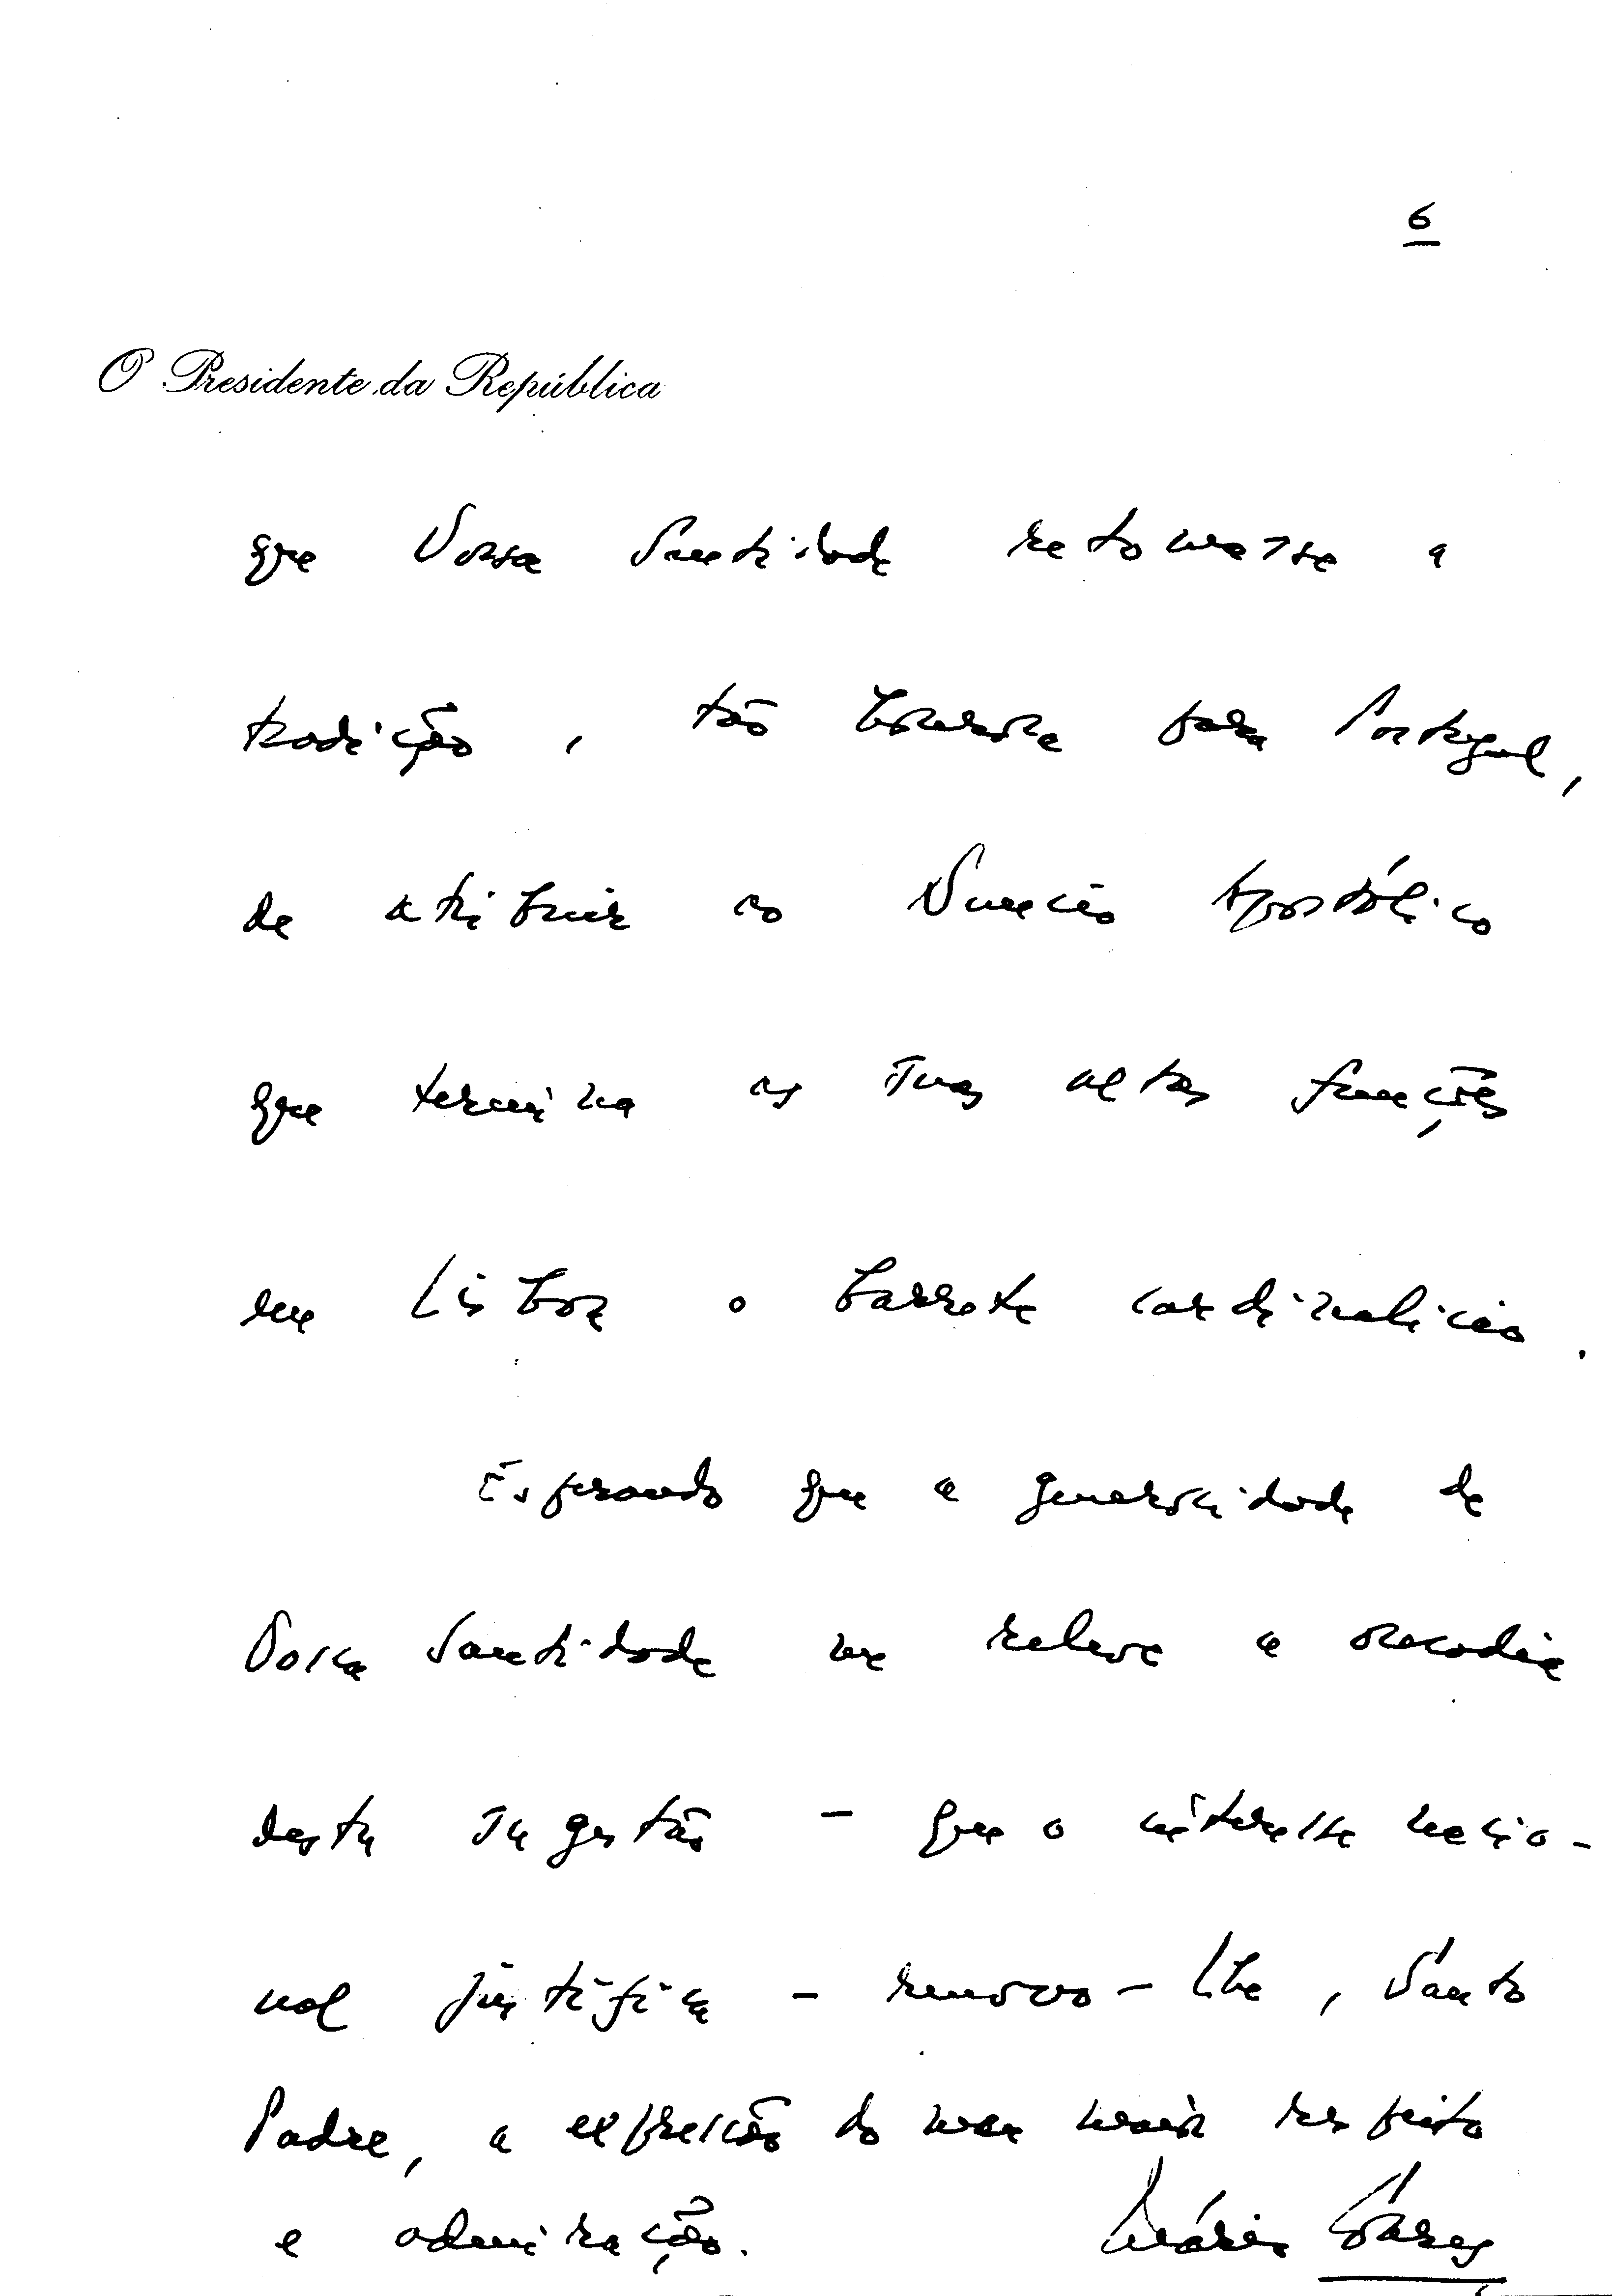 6
O Presidente da República
que Vossa Santidade retomasse a
tradição, tão honrosa para Portugal,
de atribuir ao Núncio Apostólico
que termina as suas altas funções
em Lisboa o barrete cardinalício.
Esperando que a generosidade de
Vossa Santidade me releve a ousadia
desta sugestão - que o interesse nacio-
nal justifica - renovo-lhe, Santo
Padre, a expressão do meu maior respeito
e admiração. Mário Soares